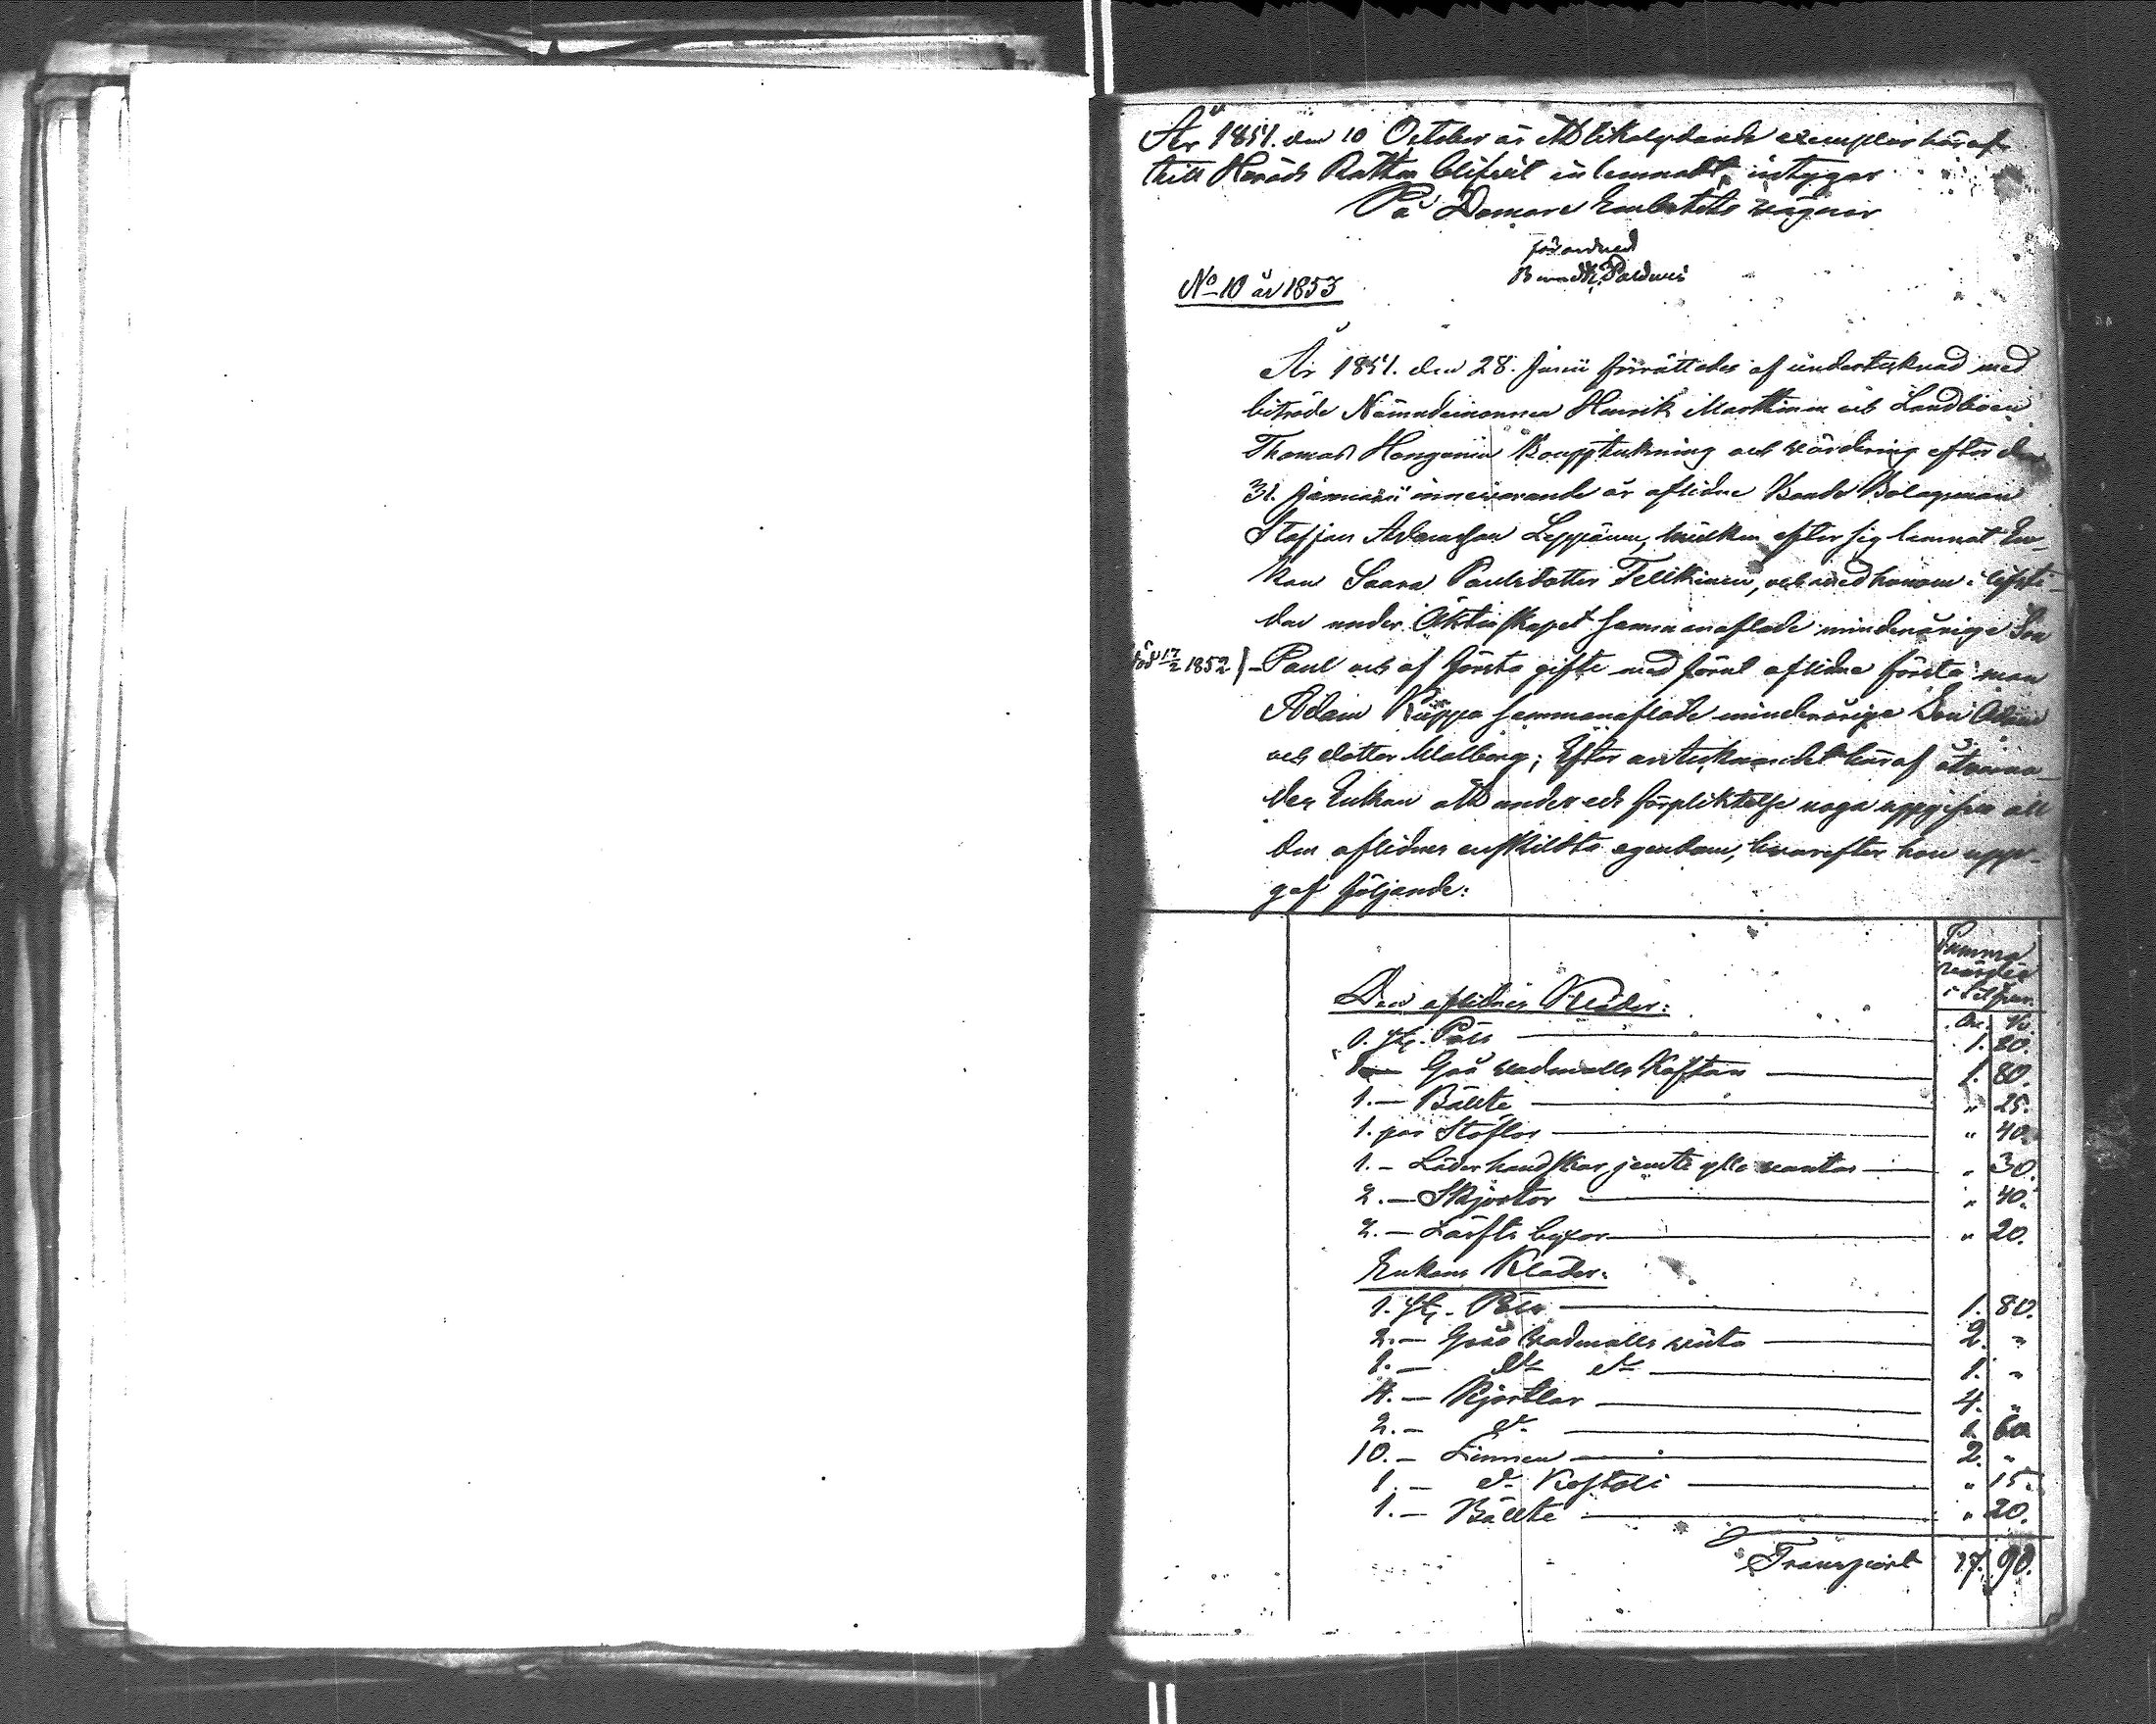 År 1851. den 10 October är ett likalydande exemplar häraf
till Härads Rätten blifvit inlemnadt, intygar
På Domare Embetets vägnar
förordnad
No 10 år 1853
År 1851. den 28. Junii förrättades af undertecknad med
biträde Nämndemannen Henrik Marttinen och Landboen
Thomas Hongonin Bouppteckning och värdering efter den
31. Januarii innevarande år aflidne Bonde Bolagsman
Staffan Adamsson Leppänen, hvilken efter sig lemnat En-
kan Saara Paulsdotter Tellkinen, och med honom i lifsti-
den under Äktenskapet sammanaflade minderårige Son
född 17/2 1852 Paul och af första gifte med förut aflidne första man
Adam Kuppa sammanaflade minderårige Son Adam
och dotter Walborg; Efter antecknandet häraf åtvarna-
des Enkan att under eds förpliktelse noga uppgifva all
den aflidnes enskildta egendom, hvarefter hon upp-
gaf följande:
Summa
värdet
i Silfver.
Den aflidnes Kläder:
1. st. Päls 1. 80.
1 — Grå vadmalls Kaftan 1. 80.
1. — Bällte " 25.
1. par Stöflor " 40.
1. — Läderhandskar jemte ylle vantar " 30.
2. — Skjortor " 40.
2. — Lärfts byxor " 20.
Enkans Kläder:
1. st. Päls 1. 80.
2. — Gråa Vadmalls 2. "
1. — do do 1. "
4. — Kjortlar 4. "
2. — do 1. 60
10. — Linnen 2. "
1. — do Kostoli " 15.
1. — Bällte " 20.
Transport 17. 90.